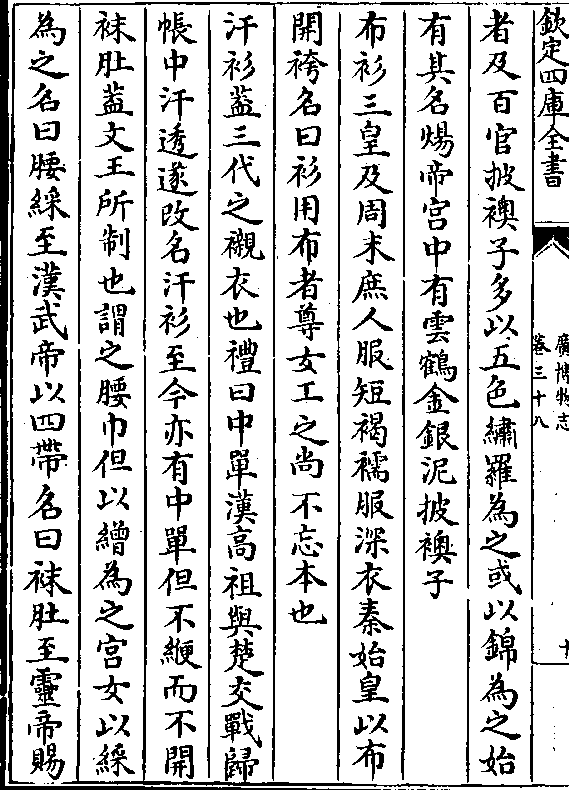 欽定四庫全書
廣博物志
卷三十八
十
者及百官披襖子多以五色繡羅為之或以錦為之始
有其名煬帝宫中有雲鶴金銀泥披襖子
布衫三皇及周末庶人服短褐襦服深衣秦始皇以布
開袴名曰衫用布者尊女工之尚不忘本也
汗衫蓋三代之襯衣也禮曰中單漢高祖與楚交戰歸
帳中汗透遂改名汗衫至今亦有中單但不緶而不開
袜肚蓋文王所制也謂之腰巾但以繒為之宫女以綵
為之名曰腰綵至漢武帝以四帶名曰袜肚至靈帝賜